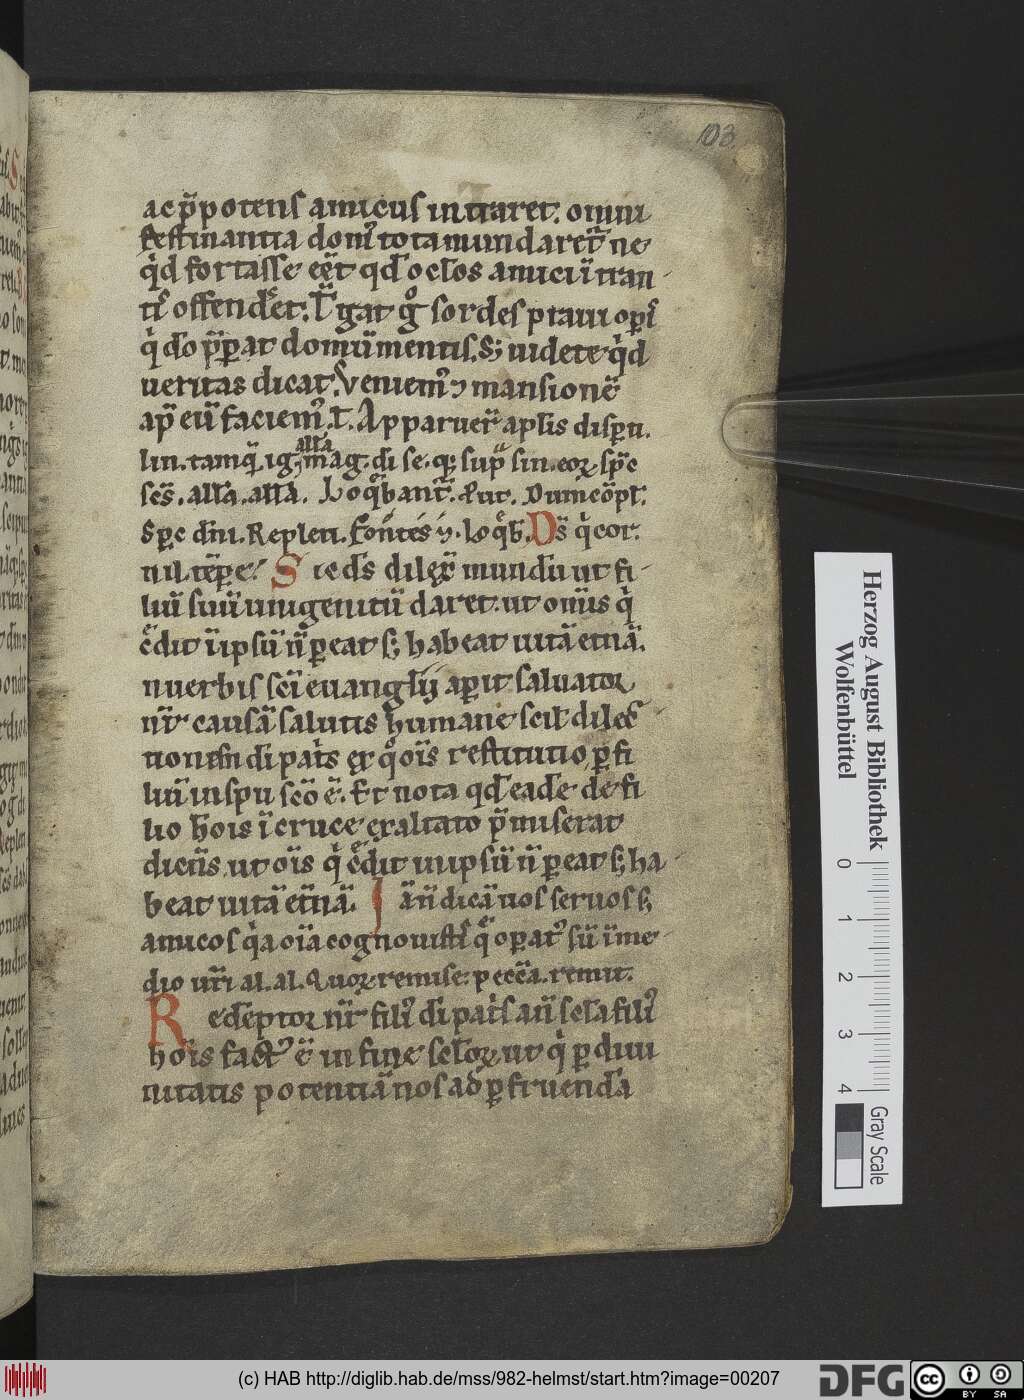 103
ac p̄potens amicus intraret. omni
festinantia dom' tota mundaret̄ ne
qͥd fortasse eēt qd̄ oclos amici ītran-
tis offenderet. Tͥgat gͦ sordes praui opis
qͥ dō p̄parat domū mentis. Sꝫ uidete qͥd
ueritas dicat. Veniem' ⁊ mansionē
ap̄ eū faciem'. ł. Apparuer̄ apłis disꝑti.
lin. tamq̄ ig. alła mag. di se. qꝫ sup̄ sin. eoꝝ sp̄c
scs̄. alła. alła. Loq̄bant̄. Aut. Dum cōpł.
Sp̄c dn̄i. Repleti. Fontes ⁊. loq̄b. Ds̄ qͥ cor.
nił tēpe. Sic ds̄ dilex̄ mundū ut fi-
liū suū unigenitū daret. ut omīs qͥ
c̄dit ī ipsū n̄ ꝑeat sꝫ habeat uitā et̄nā.
n uerbis sc̄i euanglij aꝑit saluator
nr̄ causā salutis humane scił dilec-
tionem di pat̄s ex qͦ oīs restitutio ꝑ fi
liū in spū scō ē. Et nota qd̄ eadē de fi
lio h̄ois ī cruce exaltato p̄miserat
dicēs ut oīs qͥ c̄dit in ipsū n̄ ꝑeat sꝫ ha-
beat uitā et̄nā. Iā n̄ dicā uos seruos sꝫ
amicos qͥa oīa cognouistis q̄ oꝑat' sū ī me-
dio ur̄i al. al. Quoꝝ remise: pecc̄a. remit:
Redēptor nr̄ fili' di pat̄s an̄ scła fili'
hoīs fact' ē in fine scłoꝝ ut qͥ ꝑ diui
nitatis potentiā nos ad ꝑfruendā
Herzog August Bibliothek
Wolfenbüttel
0 1 2 3 4
Gray Scale
(c) HAB http://diglib.hab.de/mss/982-helmst/start.htm?image=00207
DFG
cc BY SA